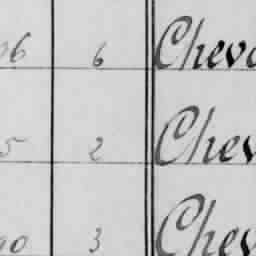 6 Cheva
5 2 Chev
90 3 Chev